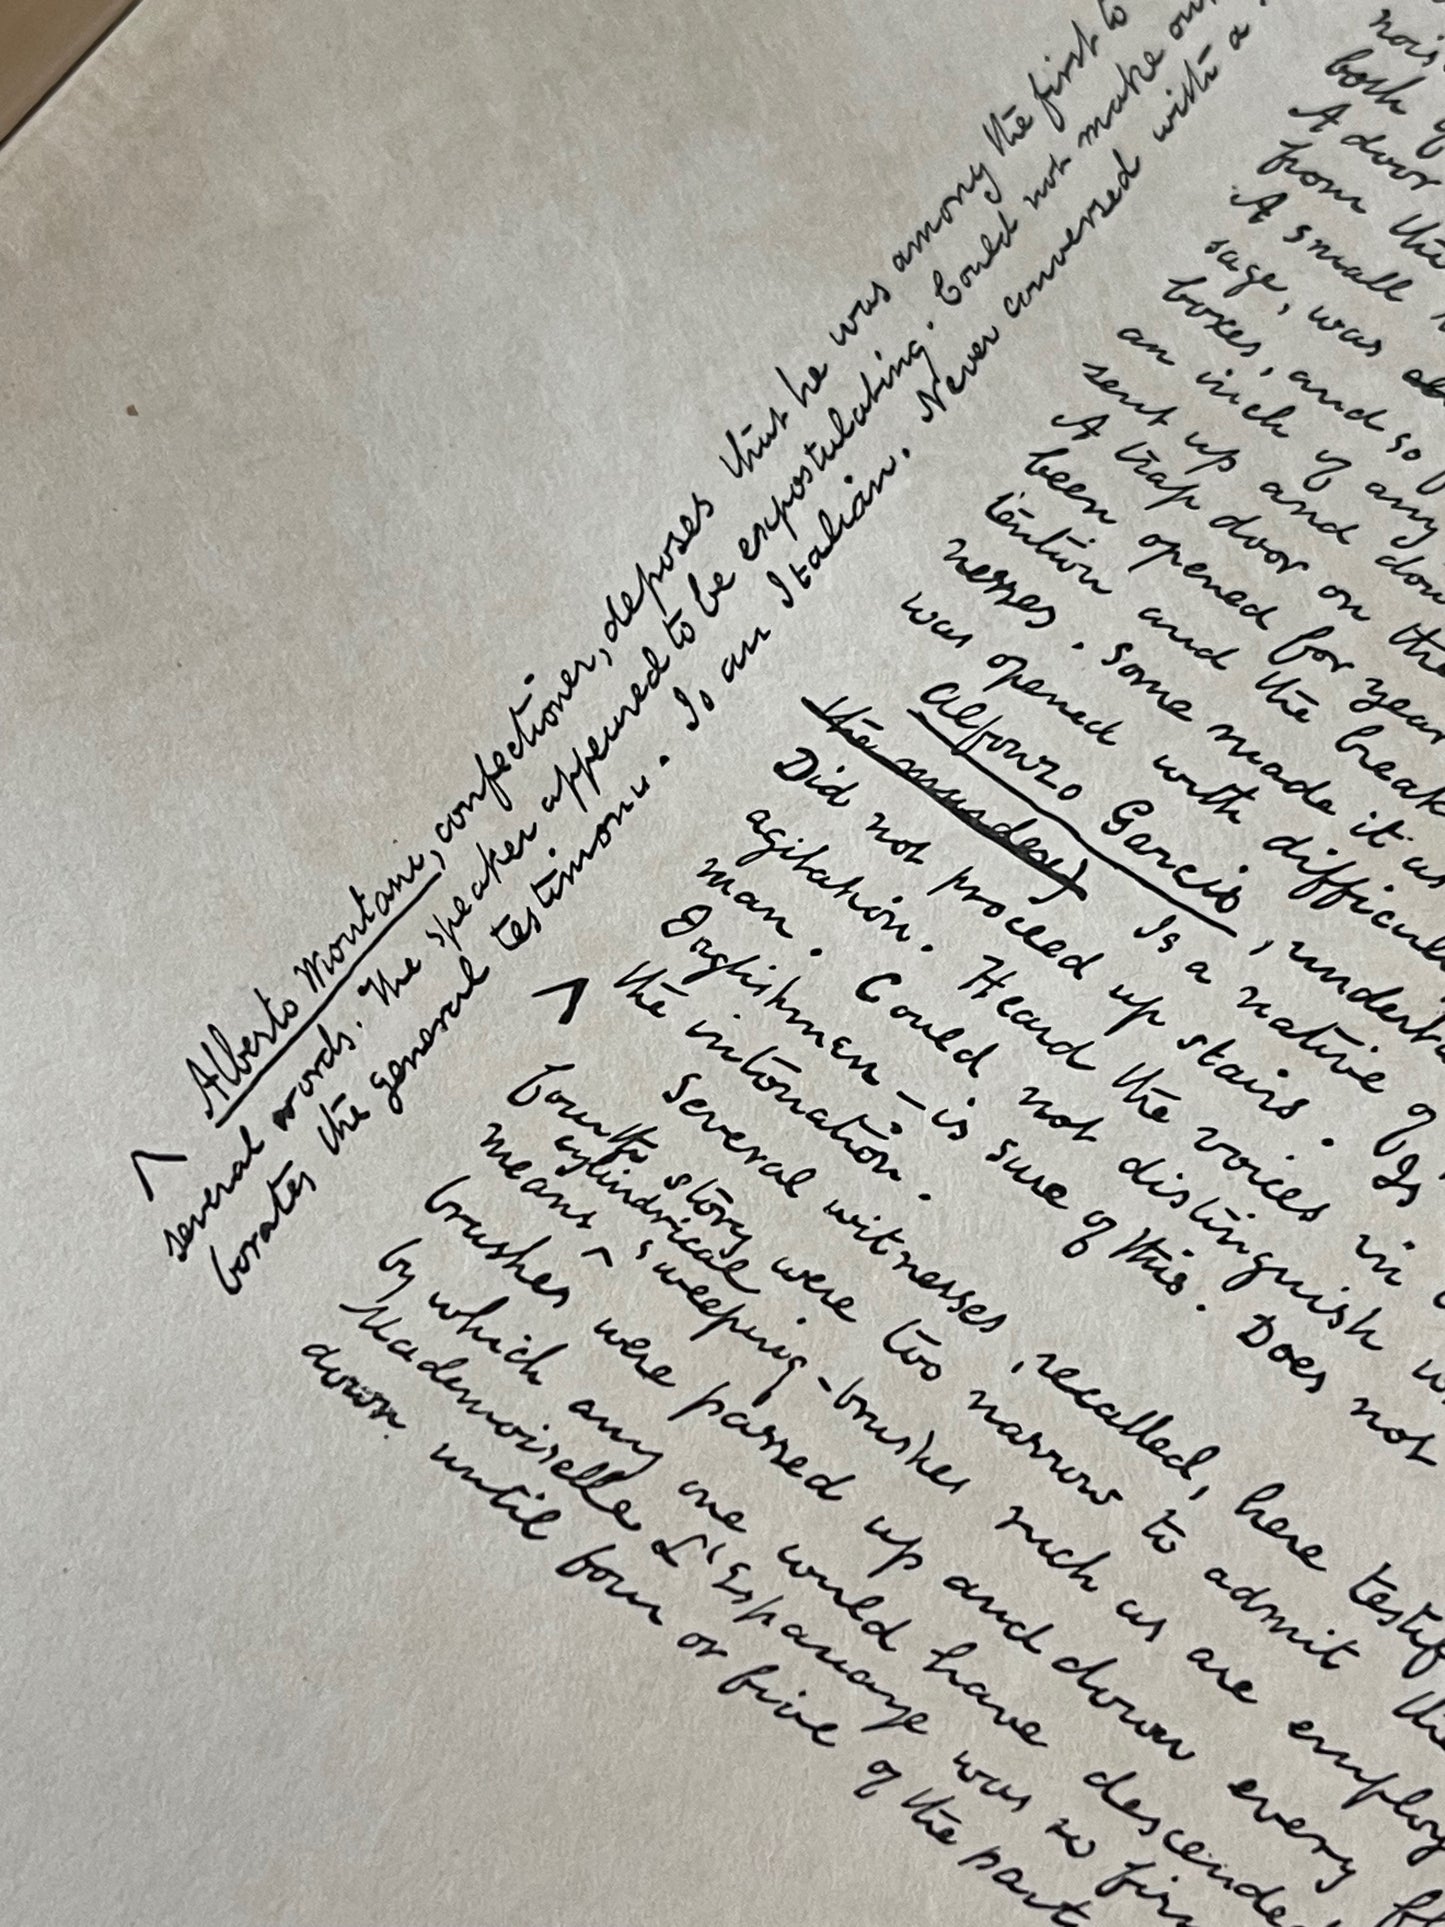 Alberto Montani, confectioner, deposes that he was among the first to
several words. The speaker appeared to be expostulating. Could not make out
borates the general testimony. Is an Italian. Never conversed with a
both of
A door
from the
A small
sage, was
boxes, and so
an inch of any
sent up and down
A trap door on the
been opened for years
tention and the break
nesses. Some made it as
was opened with difficult
Alfonzo Garcio, undert
the murdered Is a native of
Did not proceed up stairs. Is
agitation. Heard the voices in
man. Could not distinguish w
Englishmen – is sure of this. Does not
the intonation.
^
Several witnesses, recalled, here testif
fourth story were too narrow to admit the
cylindrical
means ^ sweeping-brushes such as are employ
brushes were passed up and down every fl
by which any one would have descende
Mademoiselle L'Espanaye was so firm
down until four or five of the part